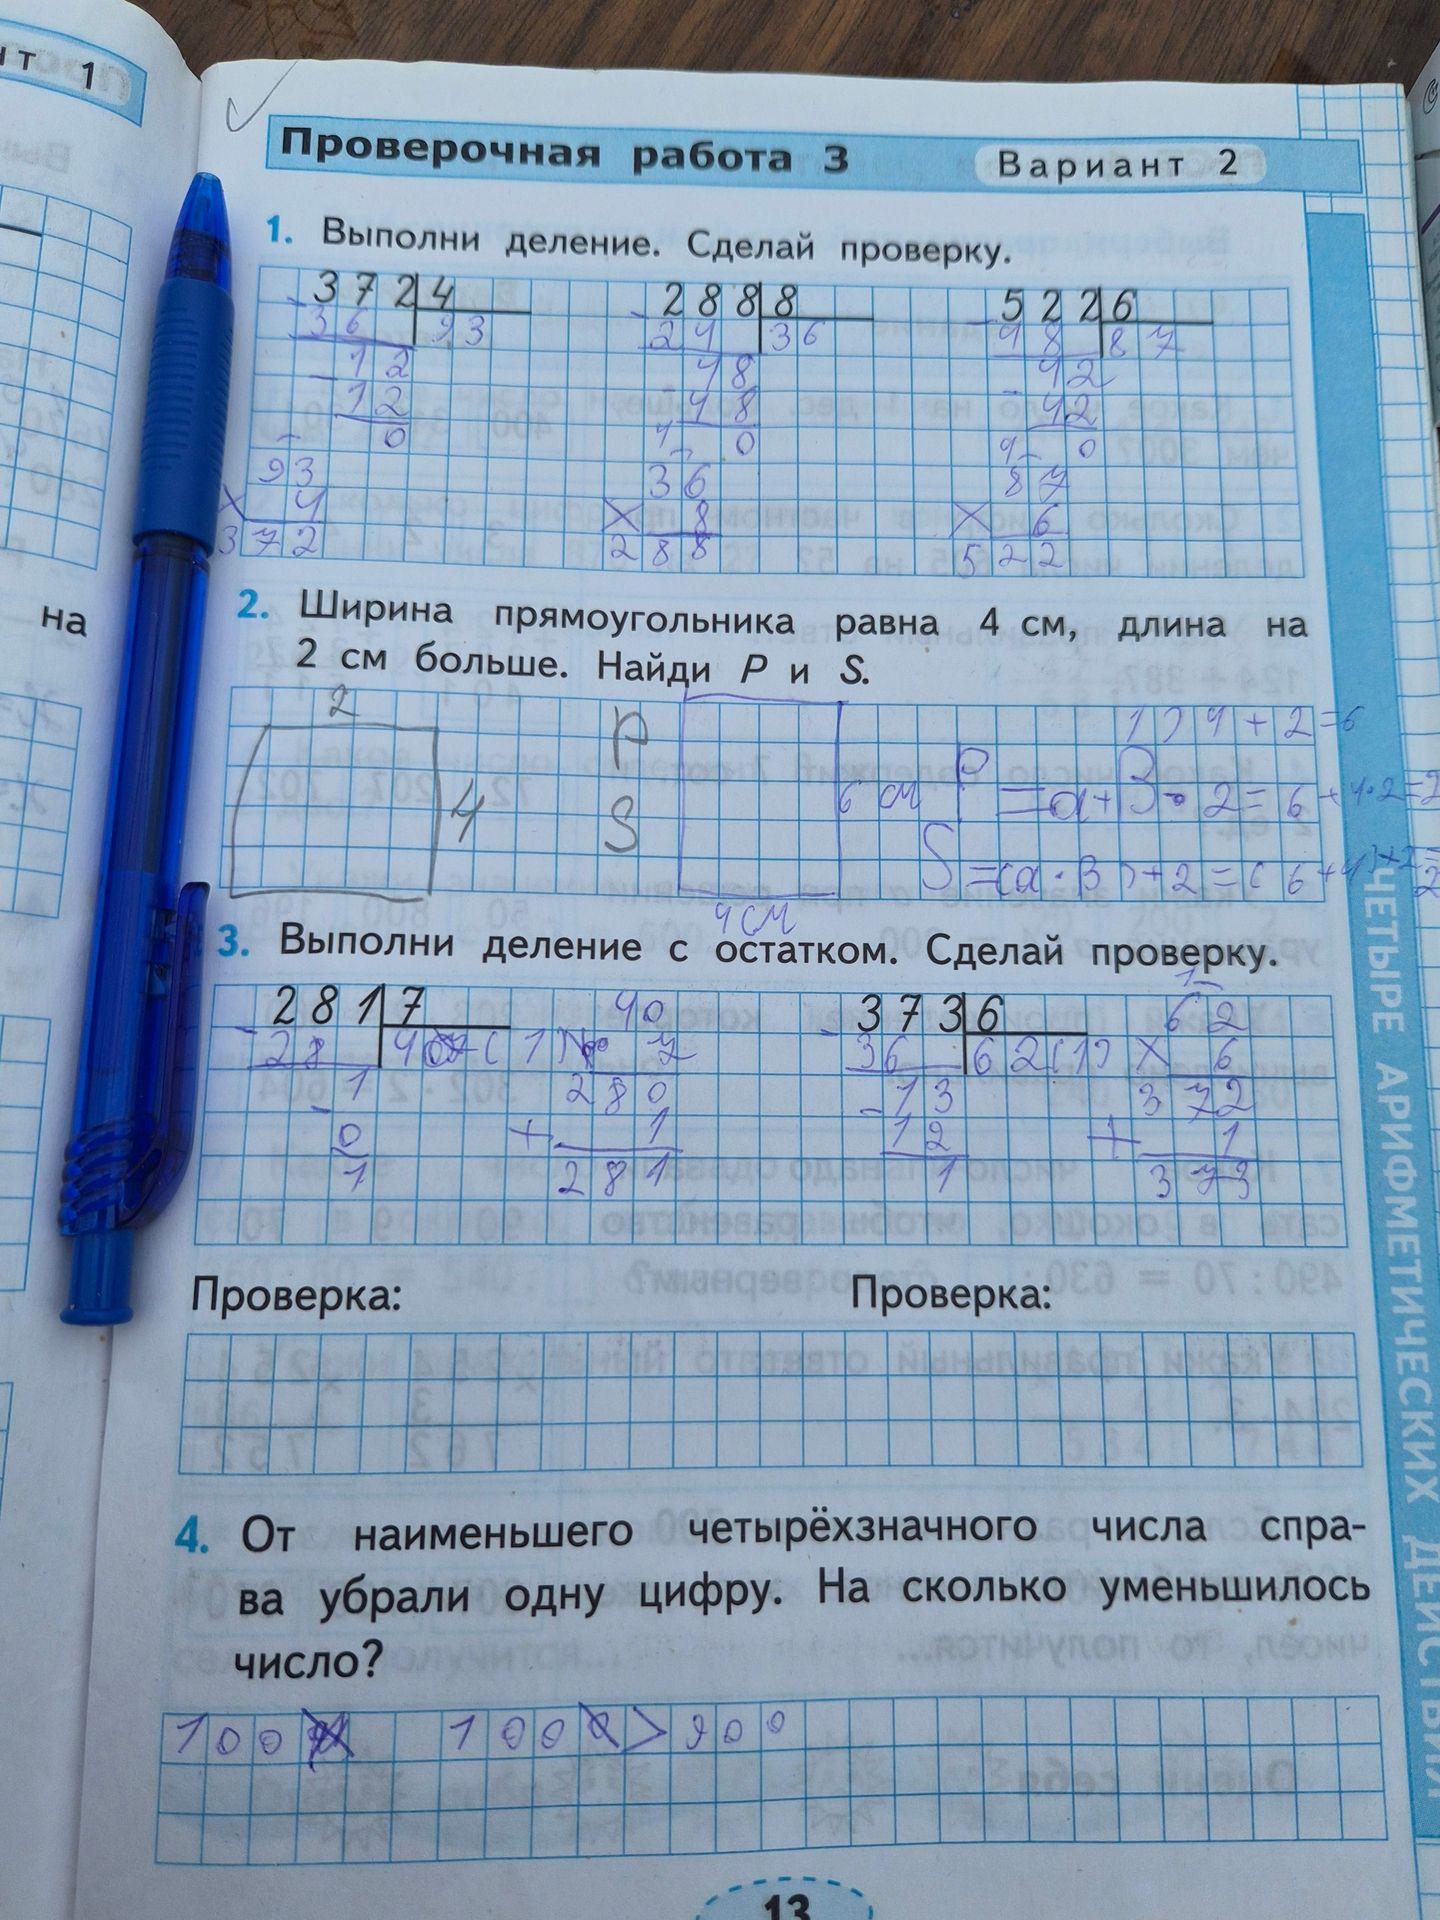 нт 1
на
Проверочная работа 3 Вариант 2
1. Выполни деление. Сделай проверку.
372 4 288 8 522 6
- 36 93 - 24 36 - 48 87
- 12 - 48 - 42
12 48 42
0 4 0 4 0
93 36 87
× 4 × 8 × 6
372 288 522
2. Ширина прямоугольника равна 4 см, длина на
2 см больше. Найди P и S.
2 P 1) 4 + 2 = 6
4 S 6 см P = a + B · 2 = 6 + 4 · 2 = 2
S = (a · B) + 2 = ( 6 + 4) + 2 =
4 см
3. Выполни деление с остатком. Сделай проверку.
281 7 40 373 6 62
- 28 40 (1) 7 - 36 62(1) × 6
- 1 280 - 13 372
0 + 1 12 + 1
1 281 1 373
Проверка: Проверка:
4. От наименьшего четырёхзначного числа спра-
ва убрали одну цифру. На сколько уменьшилось
число?
100 1000 > 900
13
ЧЕТЫРЕ АРИФМЕТИЧЕСКИХ ДЕЙСТВИЯ